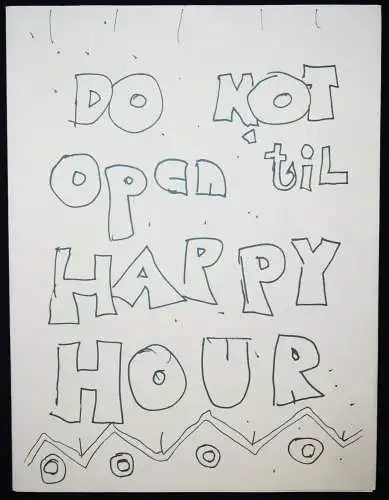 DO NOT
OPEN 'tiL
HAPPY
HOUR